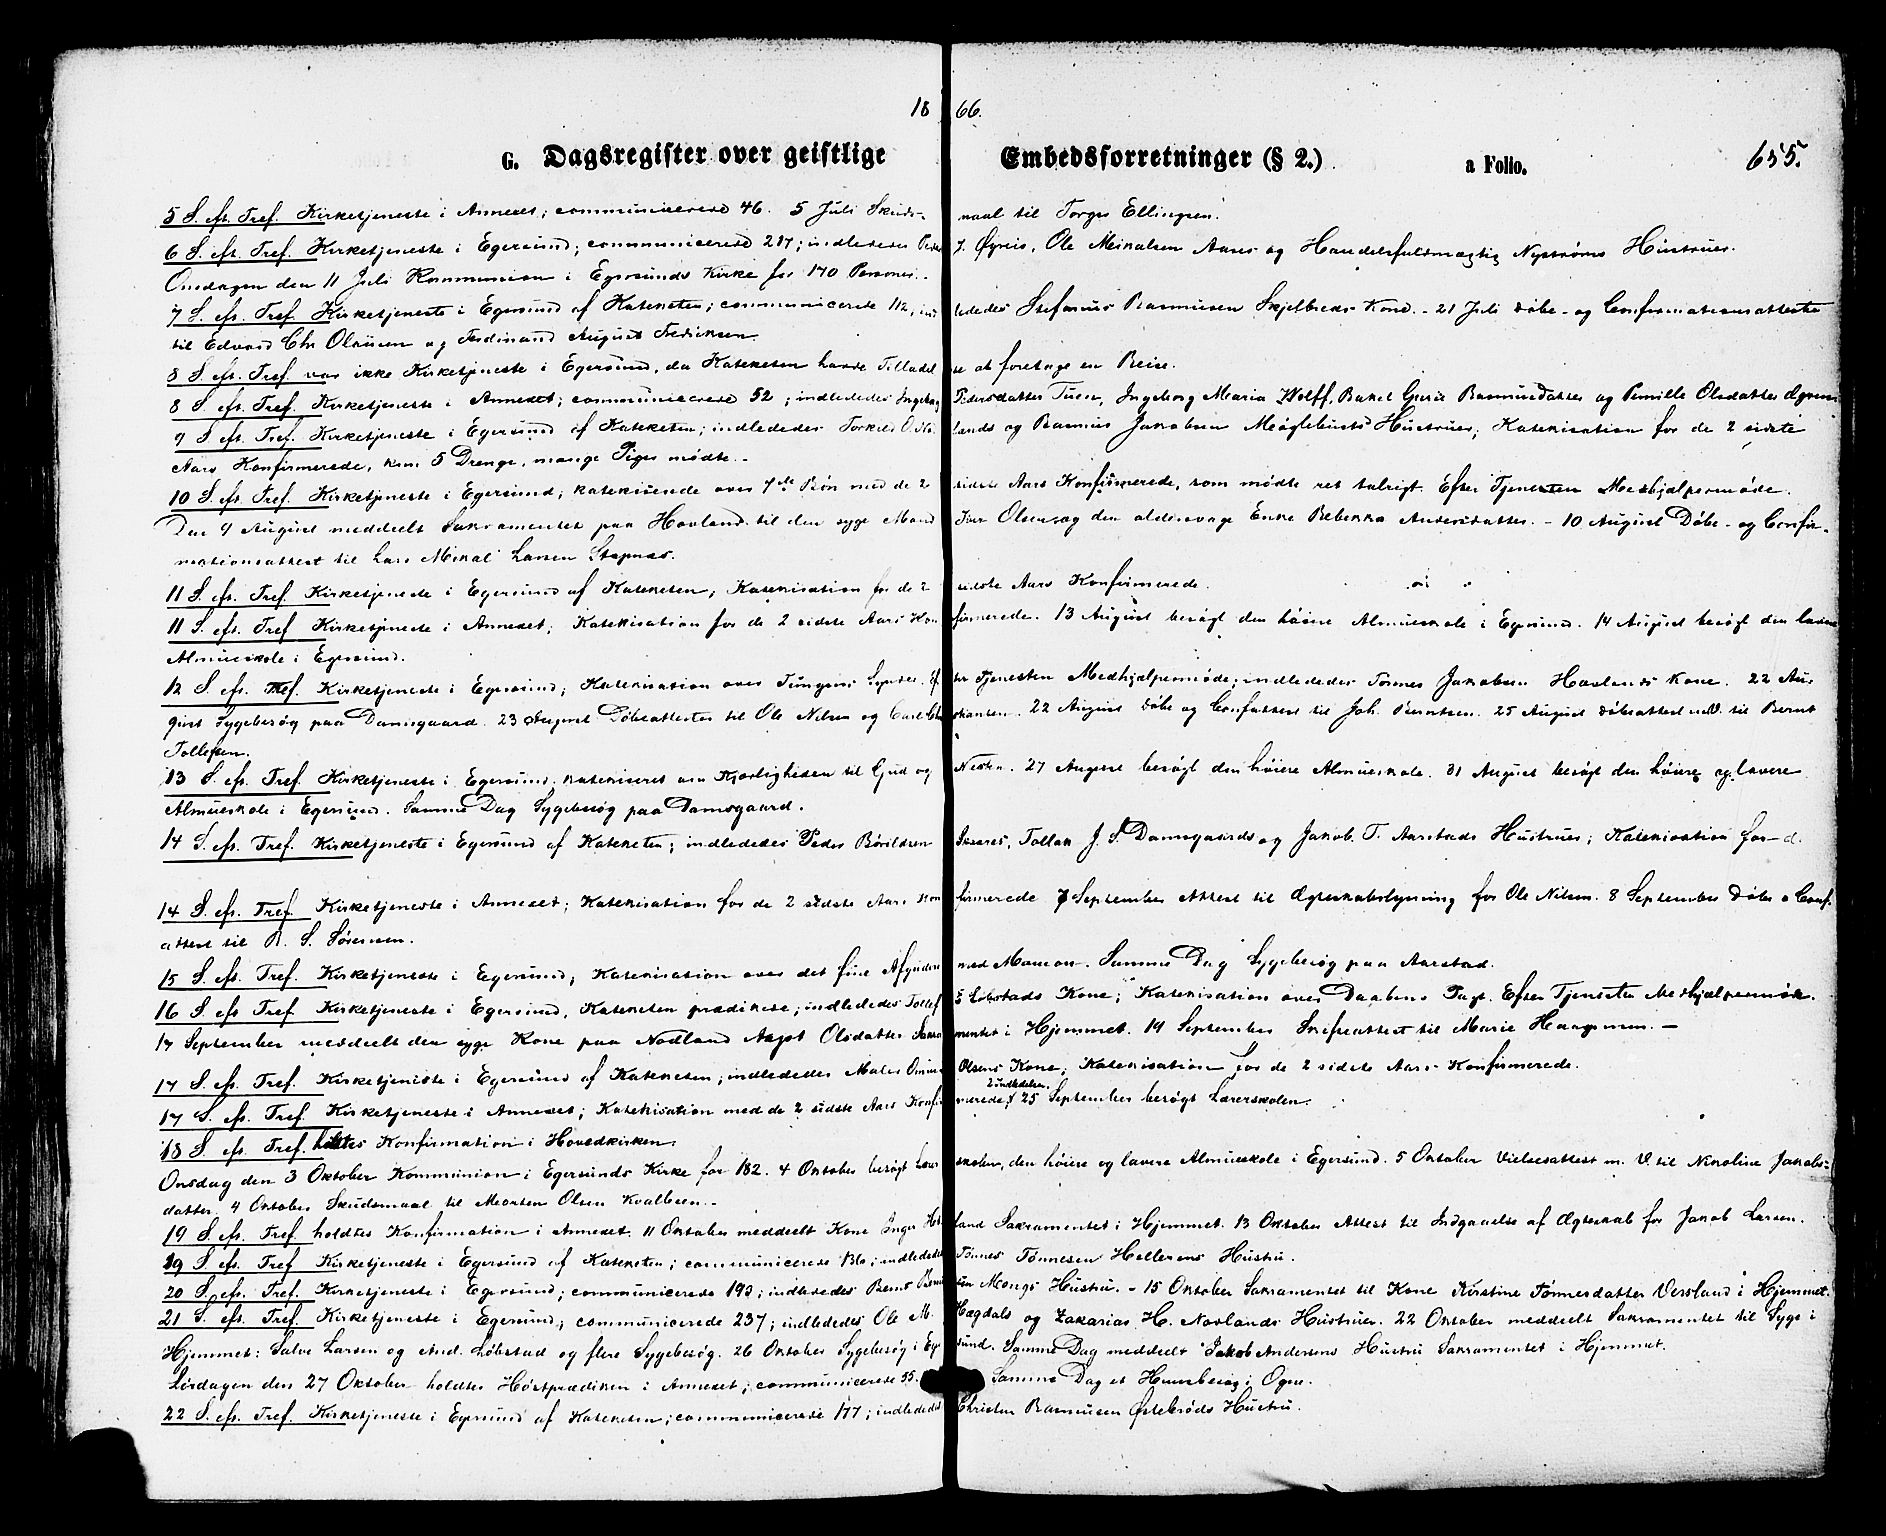 1866.
G. Dagsregister over geistlige Embedsforretninger (§ 2.) a Folio. 655.
5 S. eft. Tref. Kirketjeneste i Annexet; communicerede 46. 5 Juli Skudsmaal til Torger Ellingsen.
6 S. eft. Tref. Kirketjeneste i Egersund; communicerede 217; indlededes Peder J. Øgreis, Ole Mikalsen Aares og Handelsfuldmægtig Nystrøms Hustruer.
Onsdagen den 11 Juli Kommunion i Egersunds Kirke for 170 Personer.
7 S. eft. Tref. Kirketjeneste i Egersund af Kateketen; communicerede 112, indlededes Stefanus Rasmusen Skjelbreds Kone. - 21 Juli Døbe- og Confirmationsattester
til Edvard Chr. Olausen og Ferdinand August Fredriksen.
8 S. eft. Tref. var ikke Kirketjeneste i Egersund, da Kateketen havde Tilladelse at foretage en Reise.
8 S. eft. Tref. Kirketjeneste i Annexet; communicerede 52; indlededes Ingeborg Pedersdatter Tuen, Ingeborg Maria Wolff, Rakel Gurie Rasmusdatter og Pernille Olsdatter
9 S. eft. Tref. Kirketjeneste i Egersund af Kateketen; indlededes Torkild lands og Rasmus Jakobsen Møglebusts Hustruer; Katekisation for de 2 sidste
Aars Konfirmerede, kun 5 Drenge, mange Piger mødte. -
10 S. eft. Tref. Kirketjeneste i Egersund; katekiserede over 7de Bøn med de 2 sidste Aars Konfirmerede, som mødte ret talrigt. Efter Tjenesten Medhjælpermøde.
Den 9 August meddeelt Sakramentet paa Hovland til den syge Mand Iver Olsen og den aldersvage Enke Rebekka Andersdatter. - 10 August Døbe- og Confirmationsattest til Lars Mikal Larsen Stapnæs.
11 S. eft. Tref. Kirketjeneste i Egersund af Kateketen; Katekisation for de 2 sidste Aars Konfirmerede.
11 S. eft. Tref. Kirketjeneste i Annexet; Katekisation for de 2 sidste Aars Konfirmerede. 13 August besøgt den høiere Almueskole i Egersund. 14 August besøgt den lavere
Almueskole i Egersund.
12 S. eft. Tref. Kirketjeneste i Egersund; Katekisation over Tungens Synder. Efter Tjenesten Medhjælpermøde; indlededes Tønnes Jakobsen Hovlands Kone. 22 August Sygebesøg paa Damsgaard. 23 August Døbeattester til Ole Nilsen og Carl 22 August Døbe og Confattest til Joh. Berntsen. 25 August Døbeattest til Bernt
Tollefsen.
13 S. eft. Tref. Kirketjeneste i Egersund, katekiseret om Kjærligheden til Gud og Nesten. 27 August besøgt den høiere Almueskole. 31 August besøgt den høiere og lavere
Almueskole i Egersund. Samme Dag Sygebesøg paa Damsgaard.
14 S. eft. Tref. Kirketjeneste i Egersund af Kateketen; indlededes Peder Bårildsen Skaares, Tollak J. S. Damsgaards og Jakob T. Aarstads Hustruer; Katekisation for d.
14 S. eft. Tref. Kirketjeneste i Annexet; Katekisation for de 2 sidste Aars Konfirmerede 7 September Attest til Ægteskabslysning for Ole Nilsen. 8 September Døbe o Conf.
attest til R. S. Sørensen.
15 S. eft. Tref. Kirketjeneste i Egersund; Katekisation over det fine Afguderi med Mamon. Samme Dag Sygebesøg paa Aarstad.
16 S. eft. Tref. Kirketjeneste i Egersund, Kateketen prædikede; indlededes Tollef E Løbstads Kone; Katekisation over Daabens Pagt. Efter Tjenesten Medhjælpermøde.
17 September meddeelt den syge Kone paa Nodland Aagot Olsdatter Sakramentet i Hjemmet. 19 September Skifteattest til Marie Haagensen. -
17 S. eft. Tref. Kirketjeneste i Egersund af Kateketen; indlededes Males Olsens Kone; Katekisation for de 2 sidste Aars Konfirmerede.
17 S. eft. Tref. Kirketjeneste i Annexet; Katekisation med de 2 sidste Aars Konfirmerede; 2 indledelser. 25 September besøgt Lærerskolen.
18 S. eft. Tref. holdtes Konfirmation i Hovedkirken.
Onsdag den 3 Oktober Kommunion i Egersunds Kirke for 182. 4 Oktober besøgt Lærerskolen, den høiere og lavere Almueskole i Egersund. 5 Oktober Vielsesattest m. V. til Nikoline Jakobsdatter. 4 Oktober Skudsmaal til Morten Olsen Kvalbein. -
19 S. eft. Tref. holdtes Konfirmation i Annexet. 11 Oktober meddeelt Kone Inger Hetland Sakramentet i Hjemmet. 13 Oktober Attest til Indgaaelse af Ægteskab for Jakob Larsen.
19 S. eft. Tref. Kirketjeneste i Egersund af Kateketen; communicerede 136; indlededes Tønnes Tønnesen Hellerens Hustru.
20 S. eft. Tref. Kirketjeneste i Egersund; communicerede 193; indlededes Bernt Berntsen Mongs Hustru. - 15 Oktober Sakramentet til Kone Kirstine Tønnesdatter Versland i Hjemmet.
21 S. eft. Tref. Kirketjeneste i Egersund; communicerede 237; indlededes Ole M. Hægdals og Zakarias H. Novlands Hustruer. 22 Oktober meddeelt Sakramentet til Syge i
Hjemmet: Salve Larsen og And. Løbstad og flere Sygebesøg. 26 Oktober Sygebesøg i Egersund. Samme Dag meddeelt Jakob Andersens Hustru Sakramentet i Hjemmet.
Lørdagen den 27 Oktober holdtes Høstprædiken i Annexet; communicerede 55. Samme Dag et Huusbesøg i Ogne.
22 S. eft. Tref. Kirketjeneste i Egersund af Kateketen; communicerede 177; indlededes Christen Rasmusen Østebrøds Hustru.